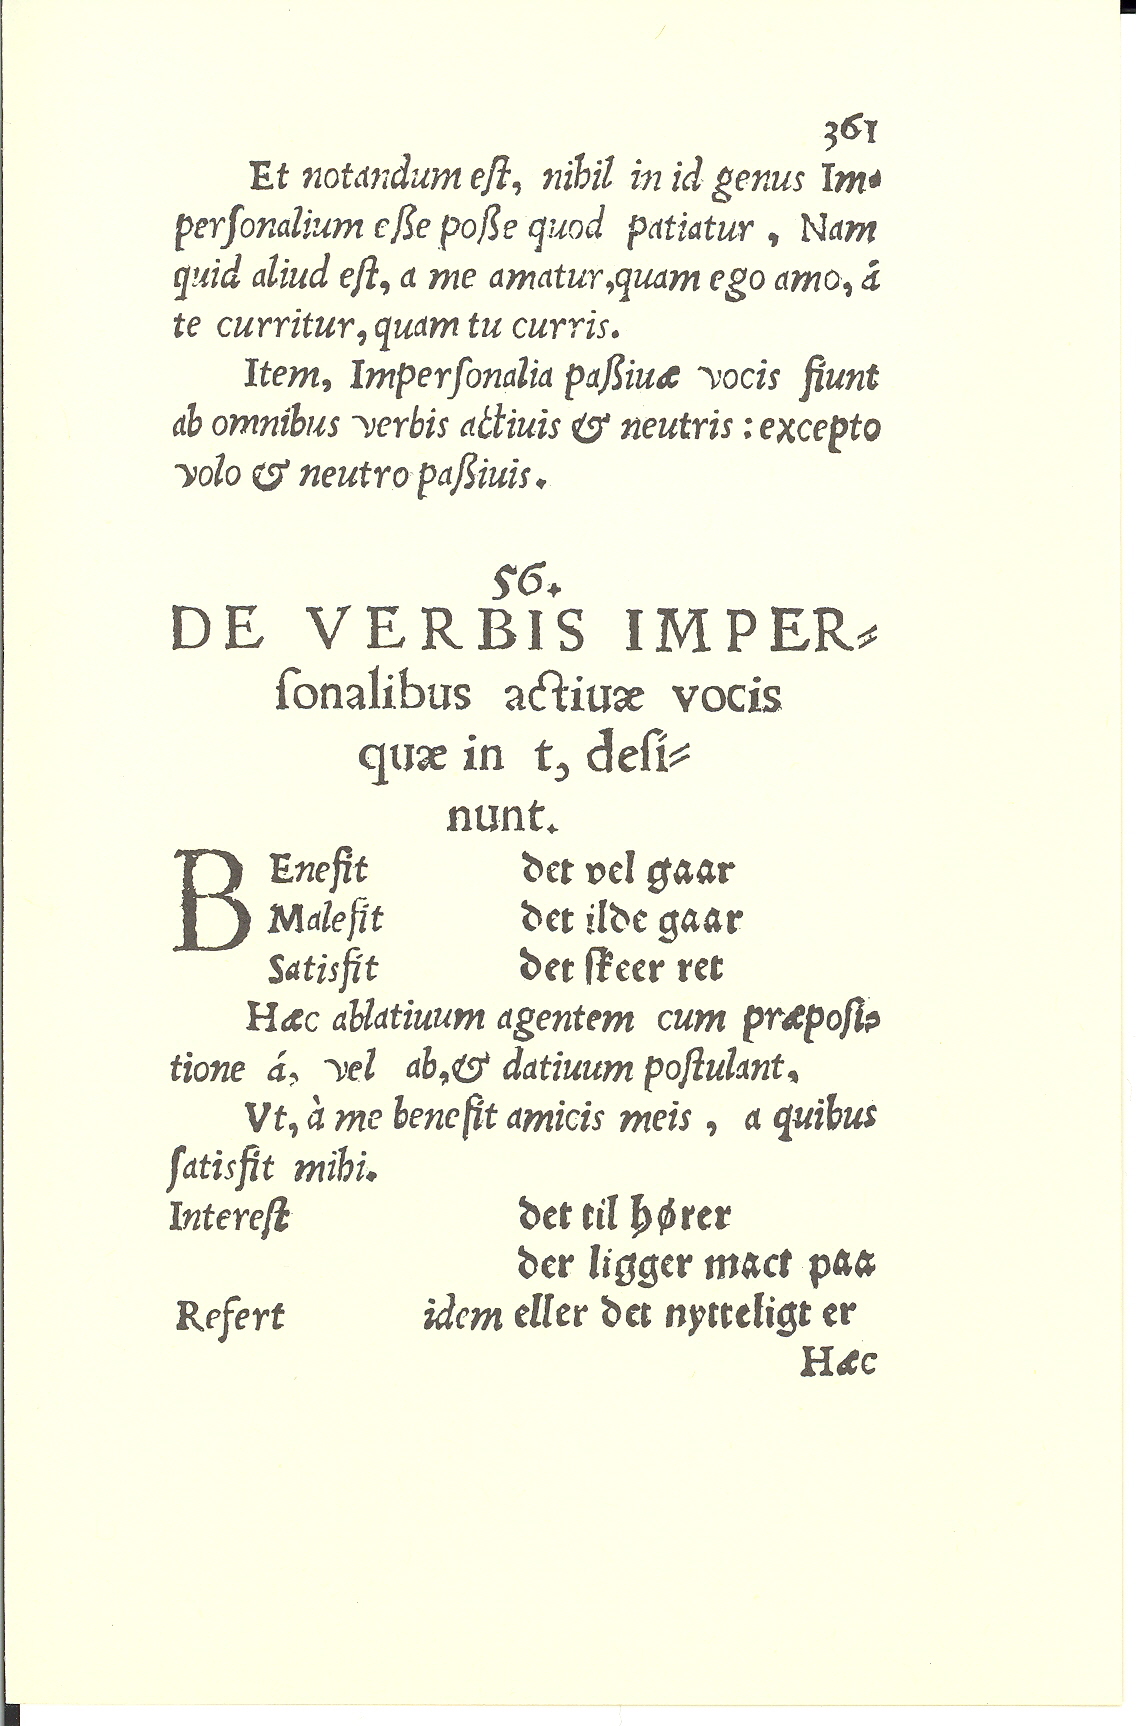 361
Et notandum eſt, nihil in id genus Im-
perſonalium eſße poſße quod patiatur , Nam
quid aliud eſt, a me amatur,quam ego amo, á
te curritur, quam tu curris.
Item, Imperſonalia paßiuæ vocis fiunt
ab omnibus verbis actiuis & neutris : excepto
volo & neutro paßiuis.
56.
DE VERBIS IMPER-
ſonalibus actiuæ vocis
quæ in t, deſi-
nunt.
BEnefit det vel gaar
Malefit det ilde gaar
Satisfit det ſkeer ret
Hæc ablatiuum agentem cum præpoſi-
tione á, vel ab,& datiuum poſtulant,
Vt, à me benefit amicis meis , a quibus
ſatisfit mihi.
Intereſt det til hører
der ligger mact paa
Refert idem eller det nytteligt er
Hæc